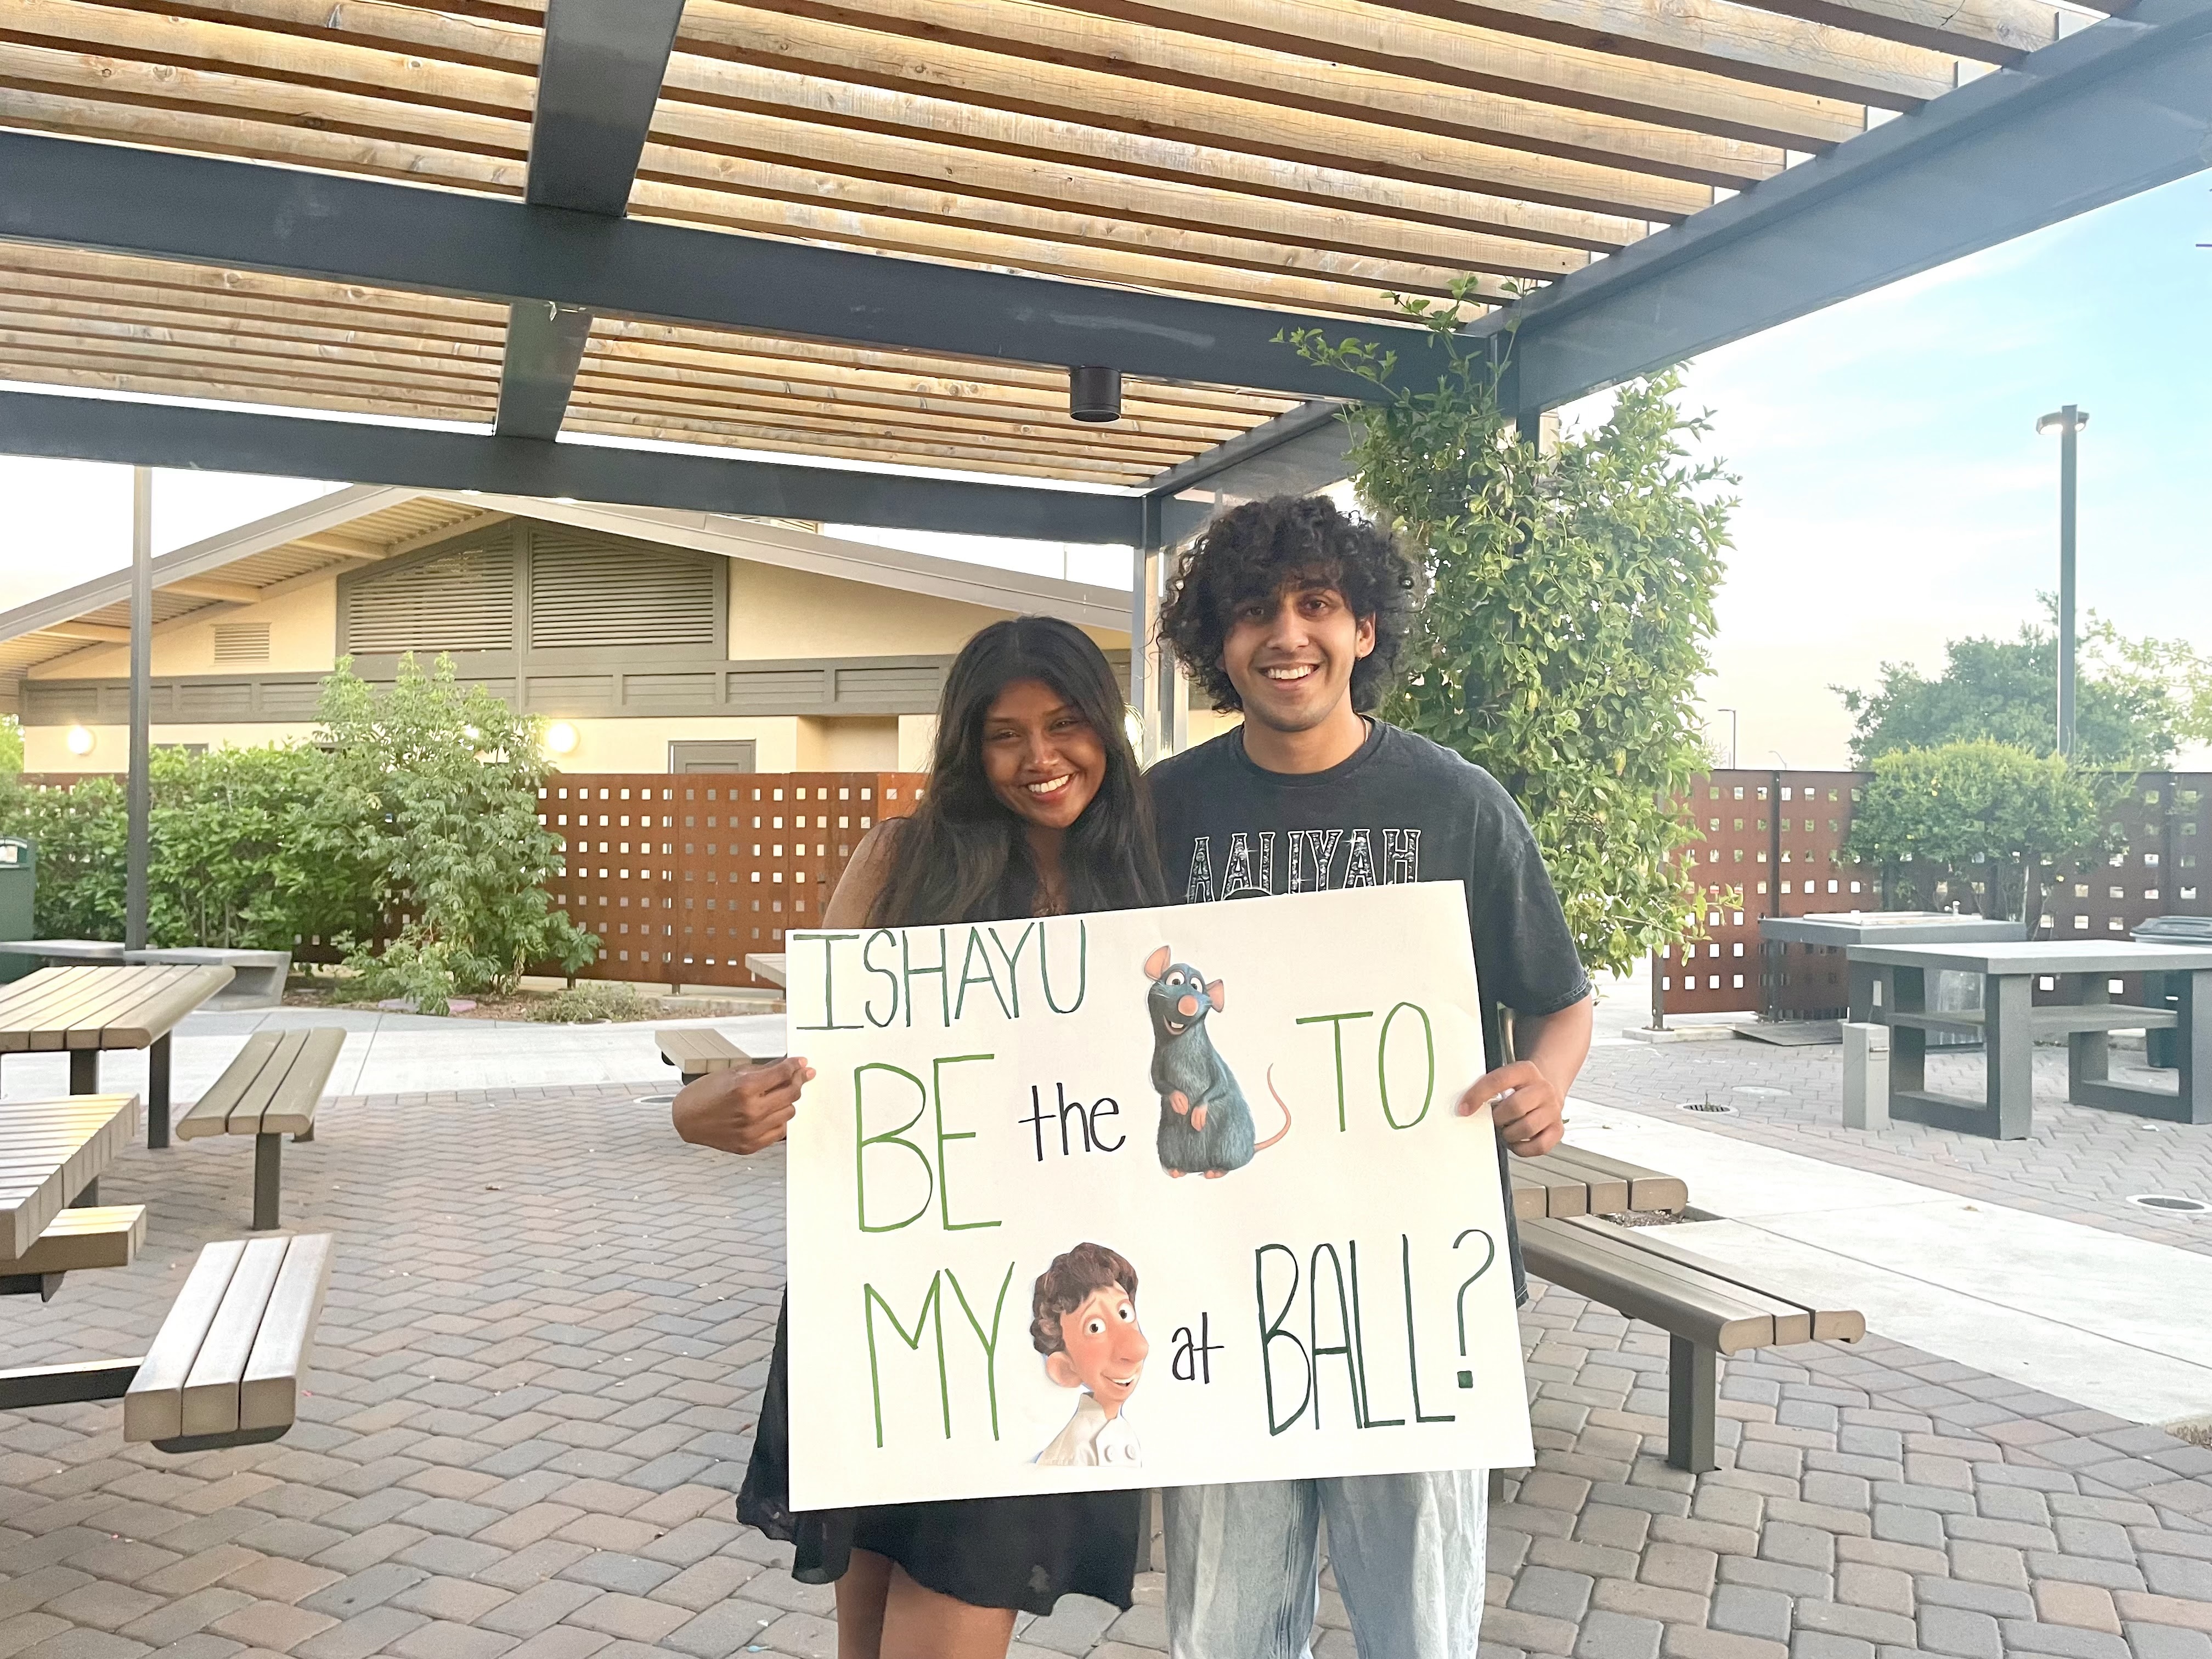 AALIYAH
ISHAYU
BE the TO
MY at BALL?